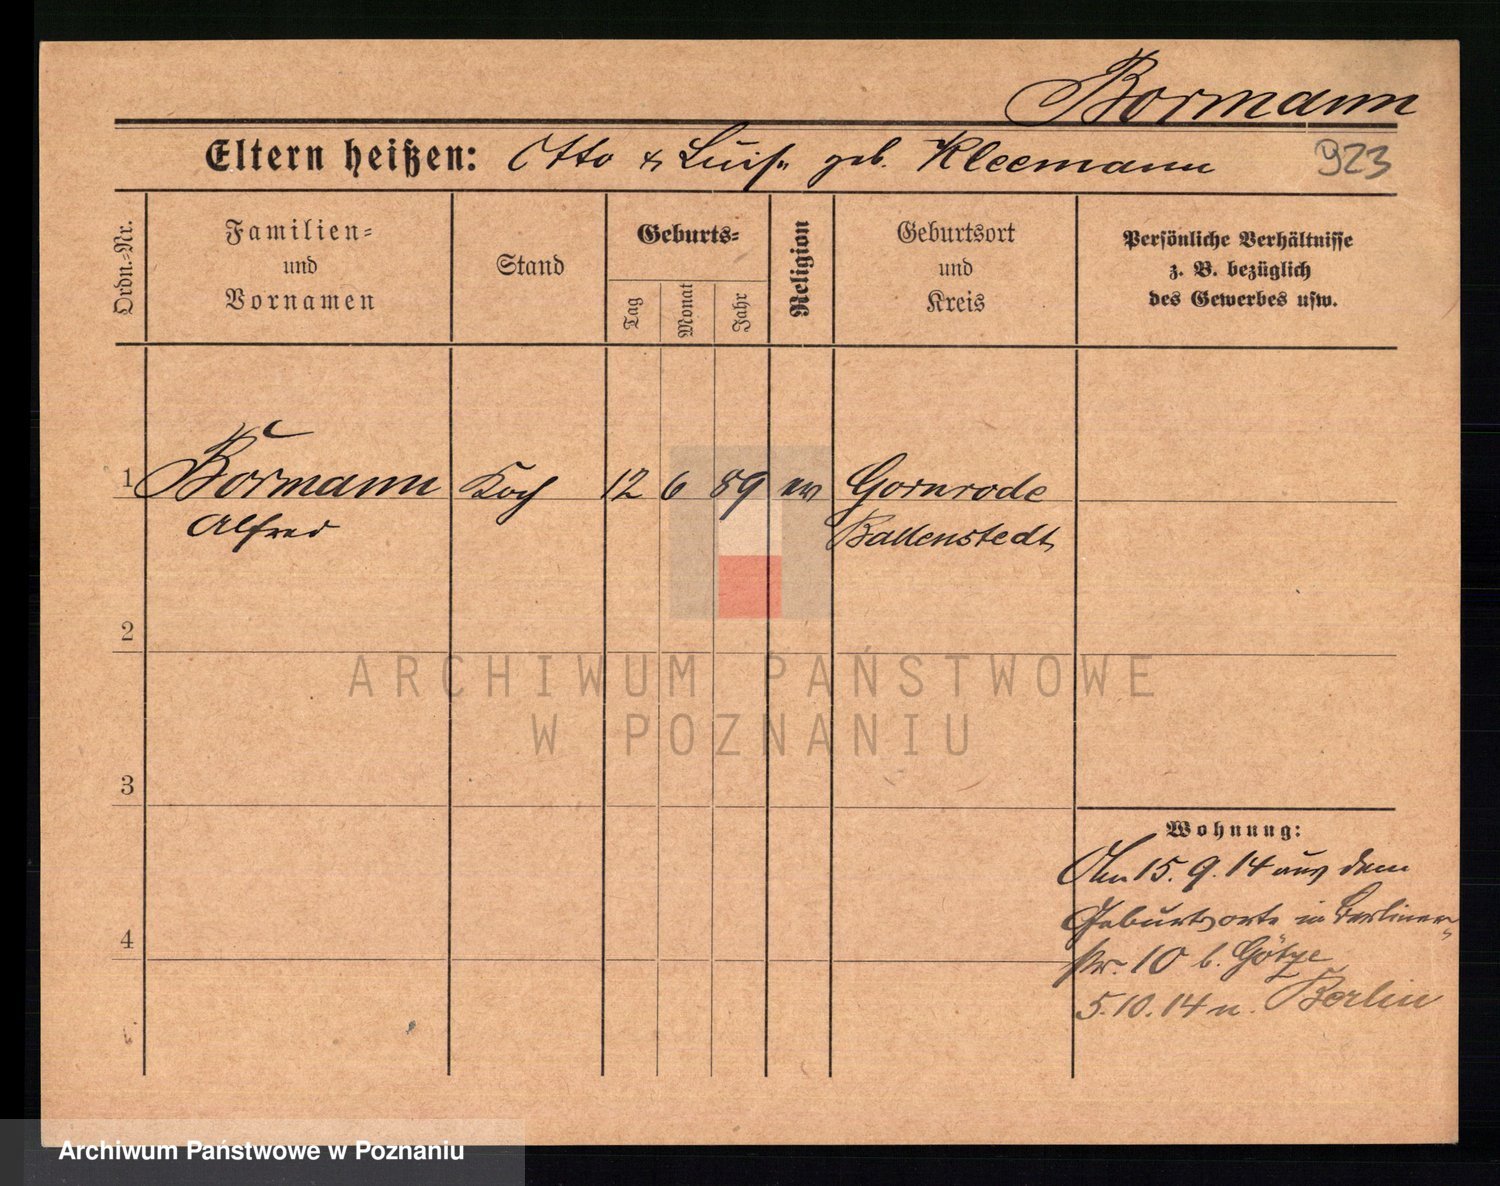 Bormann
Eltern heißen: Otto & Luise geb. Kleemann
923
Ordn.-Nr.
Familien-
und
Vornamen
Stand
Geburts-
Tag
Monat
Jahr
Religion
Geburtsort
und
Kreis
Persönliche Verhältnisse
z. B. bezüglich
des Gewerbes usw.
1 Bormann Koch 12 6 89 ev Gernrode
Alfred Ballenstedt
2
3
4
Wohnung:
Am 15.9.14 aus dem
Geburtsorte in Berliner-
str. 10 b. Götze
5.10.14 n. Berlin
ARCHIWUM PAŃSTWOWE
W POZNANIU
Archiwum Państwowe w Poznaniu